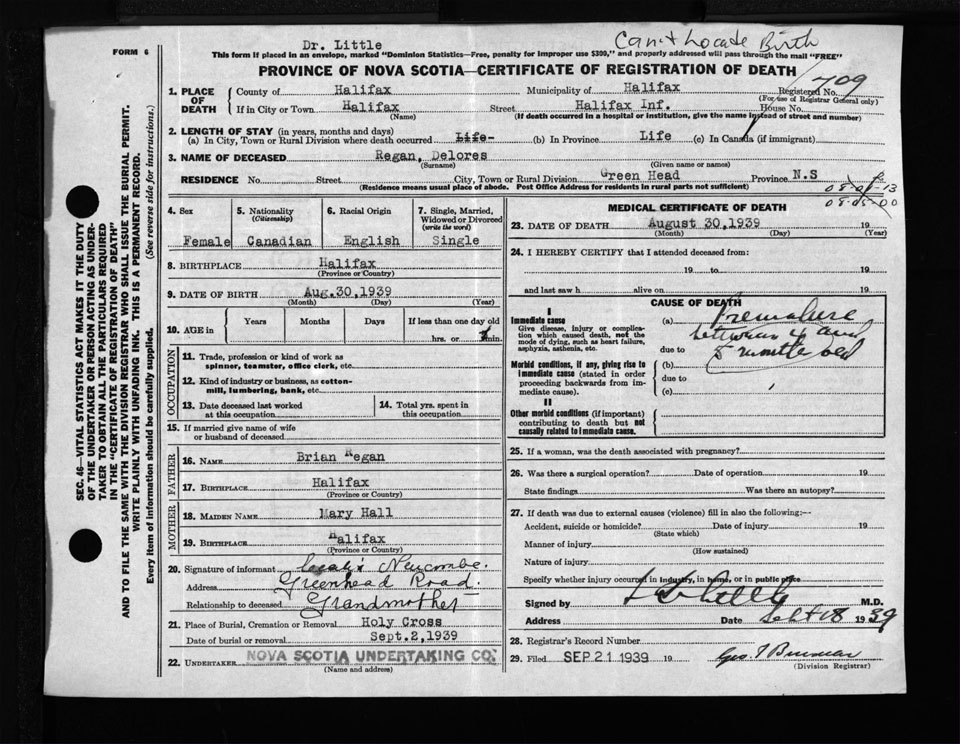 FORM 6
Dr. Little
Can't Locate Birth
This form if placed in an envelope, marked "Dominion Statistics—Free, penalty for improper use $300," and properly addressed will pass through the mail "FREE"
PROVINCE OF NOVA SCOTIA—CERTIFICATE OF REGISTRATION OF DEATH
1. PLACE OF DEATH
County of Halifax Municipality of Halifax Registered No. 709
(For use of Registrar General only)
If in City or Town Halifax Street Halifax Inf. House No.
(Name) (If death occurred in a hospital or institution, give the name instead of street and number)
2. LENGTH OF STAY (in years, months and days)
(a) In City, Town or Rural Division where death occurred Life- (b) In Province Life (c) In Canada (if immigrant)
3. NAME OF DECEASED Regan, Delores
(Surname) (Given name or names)
RESIDENCE No. Street City, Town or Rural Division Green Head Province N.S
(Residence means usual place of abode. Post Office Address for residents in rural parts not sufficient)
08-05-00
4. Sex
Female
5. Nationality
(Citizenship)
Canadian
6. Racial Origin
English
7. Single, Married,
Widowed or Divorced
(write the word)
Single
8. BIRTHPLACE Halifax
(Province or Country)
9. DATE OF BIRTH Aug.30,1939
(Month) (Day) (Year)
10. AGE in
Years Months Days If less than one day old
hrs. or min.
OCCUPATION
11. Trade, profession or kind of work as
spinner, teamster, office clerk, etc.
12. Kind of industry or business, as cotton-
mill, lumbering, bank, etc.
13. Date deceased last worked
at this occupation
14. Total yrs. spent in
this occupation
15. If married give name of wife
or husband of deceased
FATHER
16. NAME Brian Regan
17. BIRTHPLACE Halifax
(Province or Country)
MOTHER
18. MAIDEN NAME Mary Hall
19. BIRTHPLACE Halifax
(Province or Country)
20. Signature of informant Newcombe.
Address Greenhead Road.
Relationship to deceased Grandmother
21. Place of Burial, Cremation or Removal Holy Cross
Date of burial or removal Sept.2,1939
22. UNDERTAKER NOVA SCOTIA UNDERTAKING CO.
(Name and address)
MEDICAL CERTIFICATE OF DEATH
23. DATE OF DEATH August 30,1939 19
(Month) (Day) (Year)
24. I HEREBY CERTIFY that I attended deceased from:
19 to 19
and last saw h alive on 19
CAUSE OF DEATH
I
Immediate cause
Give disease, injury or complica-
tion which caused death, not the
mode of dying, such as heart failure,
asphyxia, asthenia, etc.
(a) Premature
between 4 and
due to 5 months old
Morbid conditions, if any, giving rise to
immediate cause (stated in order
proceeding backwards from im-
mediate cause).
(b)
due to
(c)
II
Other morbid conditions (if important)
contributing to death but not
causally related to immediate cause.
25. If a woman, was the death associated with pregnancy?
26. Was there a surgical operation? Date of operation 19
State findings Was there an autopsy?
27. If death was due to external causes (violence) fill in also the following:—
Accident, suicide or homicide? Date of injury 19
(State which)
Manner of injury
(How sustained)
Nature of injury
Specify whether injury occurred in industry, in home, or in public place
Signed by M.D.
Address Date Sept 18 1939
28. Registrar's Record Number
29. Filed SEP 21 1939 19
(Division Registrar)
SEC. 46—VITAL STATISTICS ACT MAKES IT THE DUTY
OF THE UNDERTAKER OR PERSON ACTING AS UNDER-
TAKER TO OBTAIN ALL THE PARTICULARS REQUIRED
IN THE "CERTIFICATE OF REGISTRATION OF DEATH"
AND TO FILE THE SAME WITH THE DIVISION REGISTRAR WHO SHALL ISSUE THE BURIAL PERMIT.
WRITE PLAINLY WITH UNFADING INK. THIS IS A PERMANENT RECORD.
Every item of information should be carefully supplied. (See reverse side for instructions.)